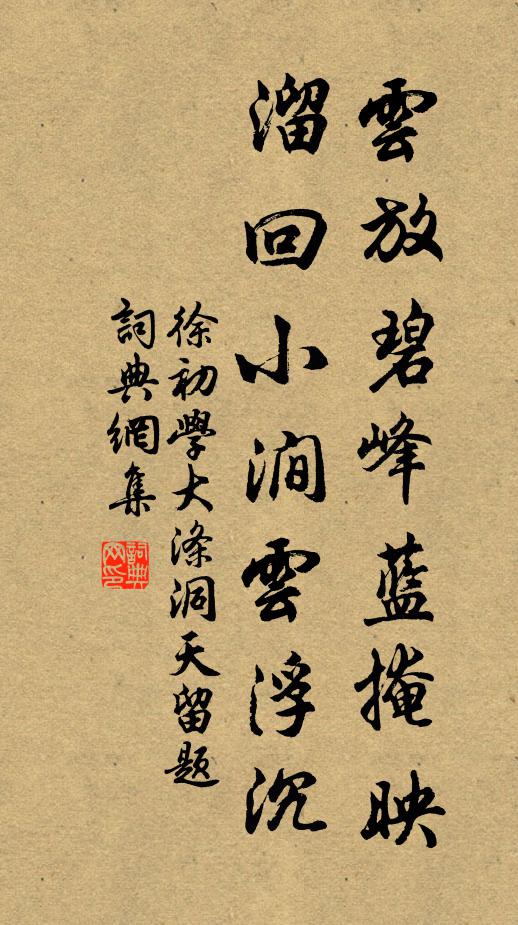 雲放碧峰藍掩映
溜回小澗雲浮沉
徐初學大滌洞天留題
詞典網集
詞典網印